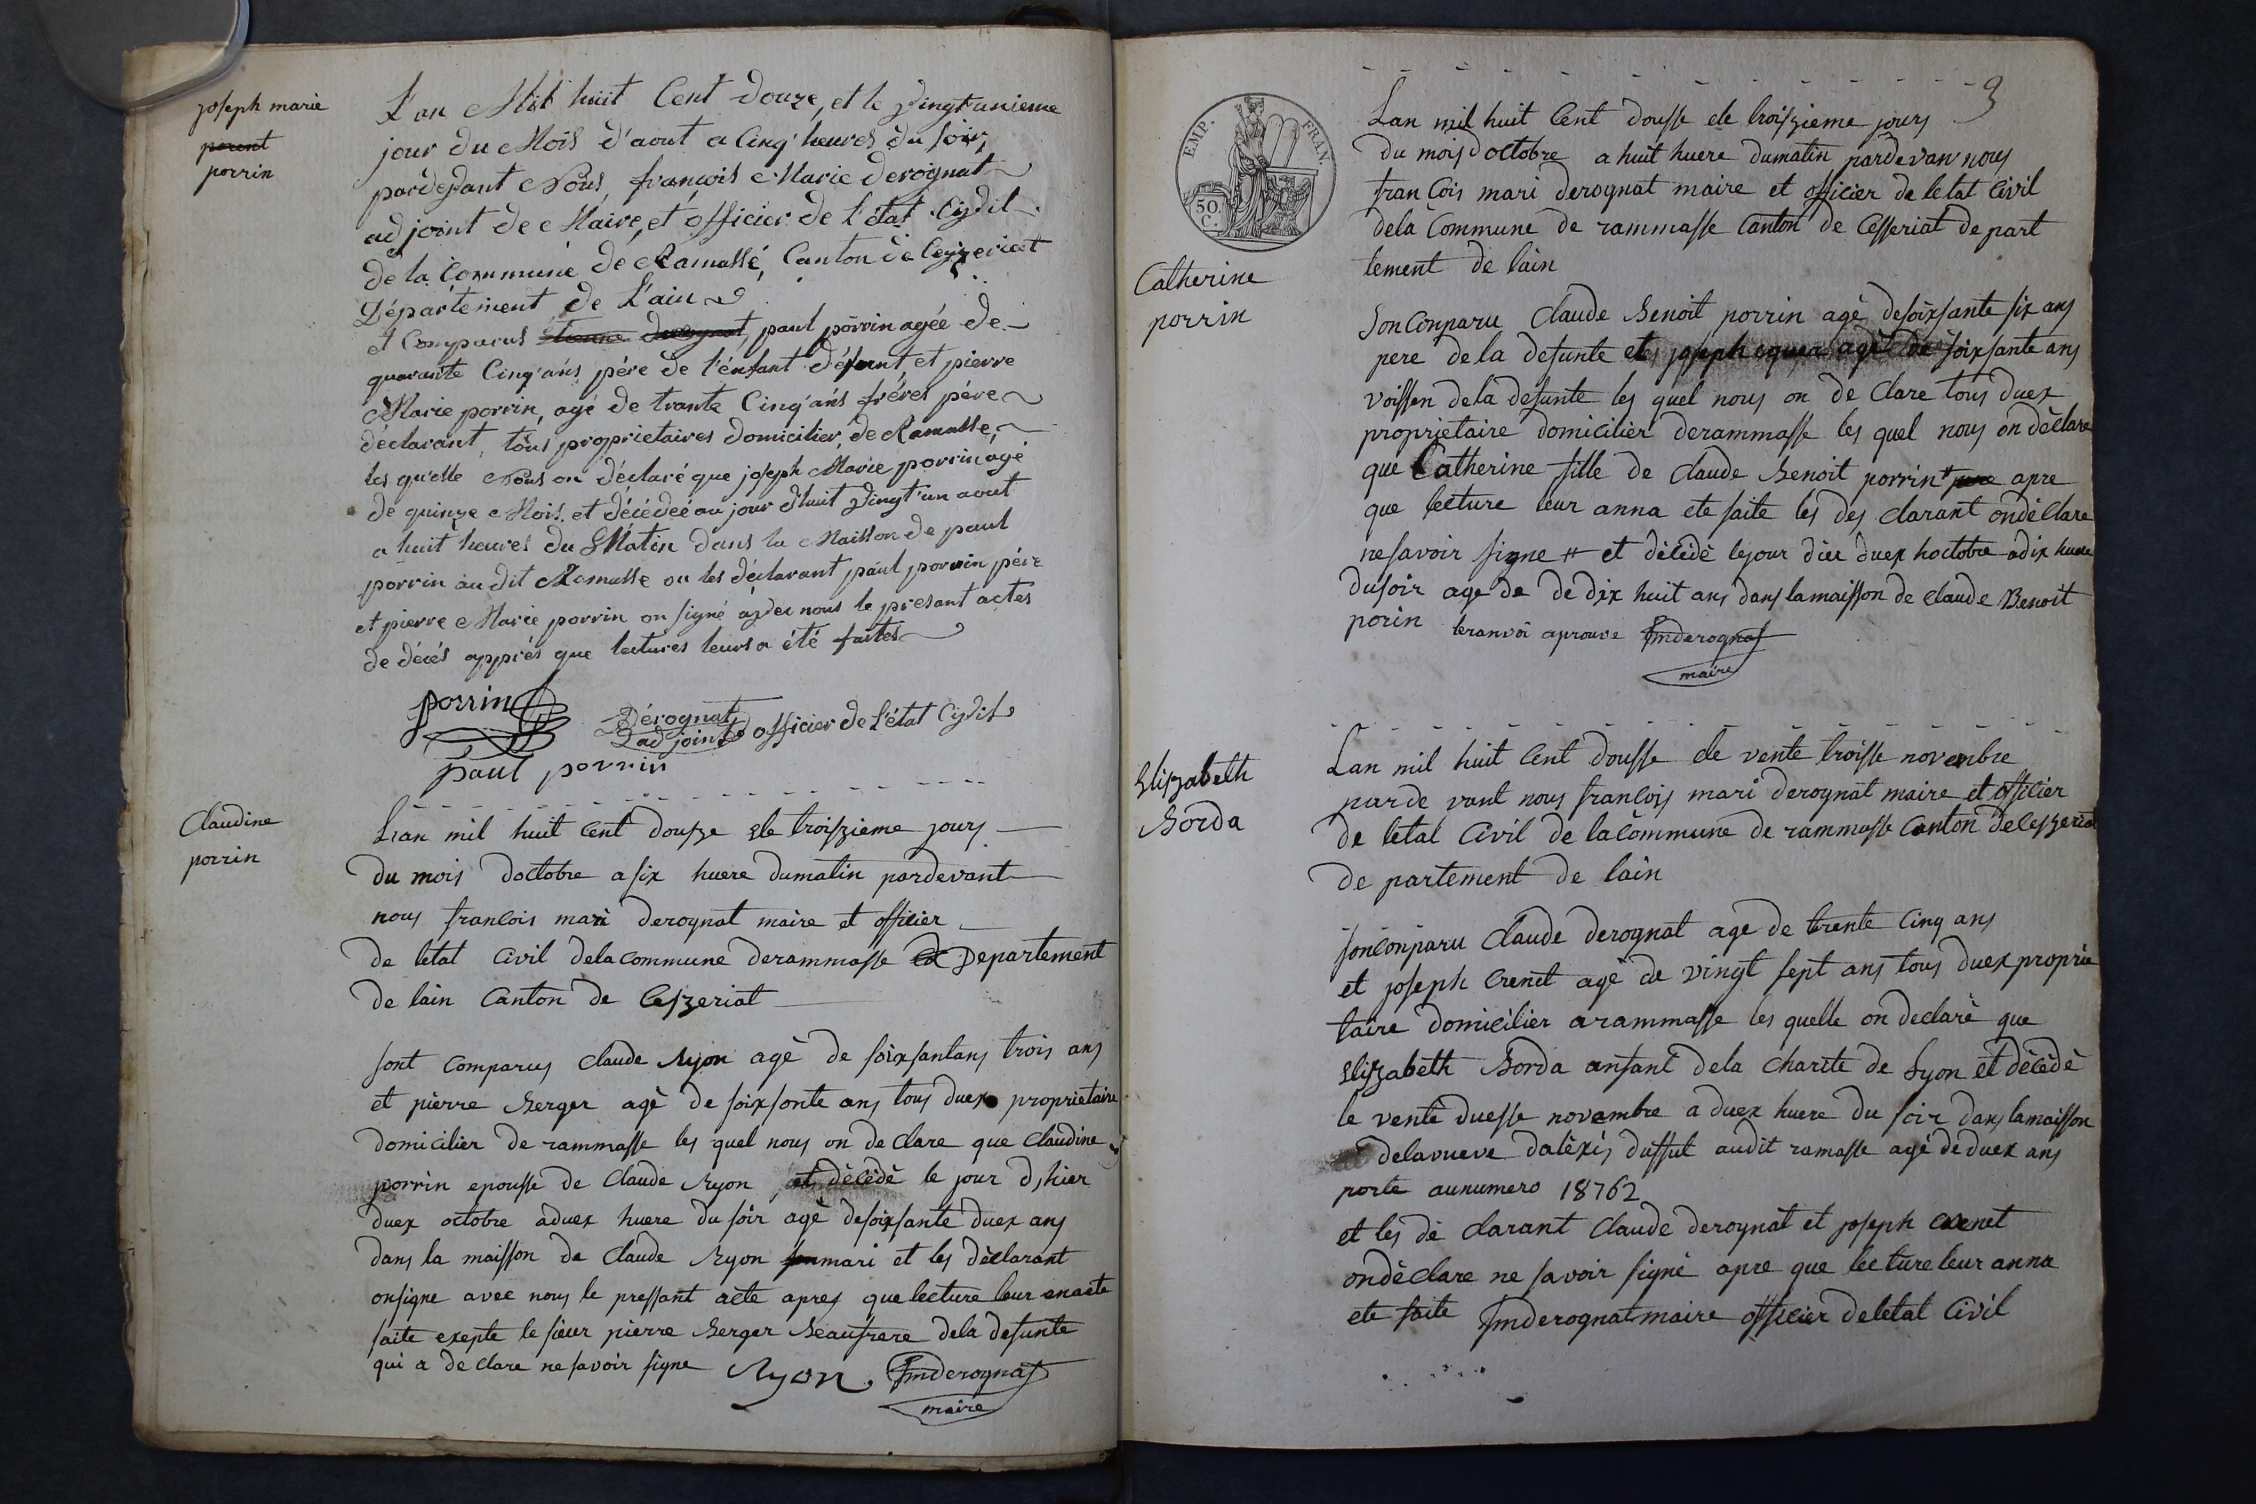 joseph marie
porent
porrin
L'an Mil huit Cent douze, et le vingt unieme
jour du Mois d'aout a Cinq heures du soir,
pardevant Nous, françois Marie derognat
adjoint de Maire, et officier de l'état Civil
de la Commune de Ramassé, Canton de Ceyzeriat
Département de L'ain
et Comparus paul porrin agée de
quarante Cinq ans père de l'enfant défunt et pierre
Marie porrin, agé de trante Cinq ans frères père
déclarant, tous proprietaires domicilier, de Ramasse,
les qu'elle Nous on déclaré que joseph Marie porrin agé
de quinze Mois, et décédeé au jour d'huit vingt'un aout
a huit heures du Matin dans la Maisson de paul
porrin au dit Ramasse ou les déclarant paul porrin père
et pierre Marie porrin on signé avec nous le presant actes
de décés apprés que lectures leurs a été faites
porrin
Dérognat
adjoint officier de L'état Civil
paul porrin
Claudine
porrin
Lian mil huit Cent dousze ele troiszieme jours
du mois doctobre a six huere dumatin pardevant
nous francois mari derognat maire et officier
de letat Civil dela commune derammasse Departement
de lain Canton de Ceszeriat
sont comparus claude Ryon agè de soixsantans trois ans
et pierre Berger agè de soixsonte ans tous duex proprietaire
domicilier de rammasse les quel nous on de clare que claudine
porrin epousse de Claude Ryon et dècèdè le jour d,hier
duex octobre aduex huere du soir agè desoixsante duex ans
dans la maisson de Claude Ryon mari et les dèclarant
onsigne avec nous le pressant acte apres que lecture leur enaete
faite exepte le sieur pierre Berger Beaufrere dela defunte
qui a de clare ne savoir signe Ryon. fmderognat
maire
3
EMP. FRAN.
50.
C.
Catherine
porrin
Lan mil huit Cent dousse ele troiszieme jours
du mois doctobre a huit huere dumatin pardevan nous
francois mari derognat maire et officier de letat Civil
dela Commune de rammasse Canton de Cesseriat de part
tement de lain
Son Conparu Claude Benoit porrin agè desoixsante six ans
pere de la defunte et joseph agè de soixsante ans
voissen dela defunte les quel nous on de clare tous duex
proprietaire domicilier derammasse les quel nous on dèclare
que Catherine fille de Claude Benoit porrin apre
que lecture leur anna ete faite les des clarant ondèclare
nesavoir signe # et dècèdè lejour dier duex hoctobre adix huere
dusoir age de de dix huit ans dans lamaisson de Claude Benoit
porin leranvoi aprouve fmderognat
maire
Eliszabeth
Borda
Lan mil huit Cent dousse ele vente troisse novembre
parde vant nous francois mari derognat maire et officier
de letat Civil de la commune de rammasse Canton de Ceszeriat
de partement de lain
sonconparu Claude derognat age de trente Cinq ans
et joseph Crenet agè de vingt sept ans tous duex proprie
taire domicilier arammasse les quelle on declarè que
Eliszabeth Borda anfant dela charite de Lyon et dècèdè
le vente duesse novambre a duex huere du soir dans lamaisson
delavueve dalèxis duffut audit ramasse agè de duex ans
porte aunumero 18762
et les dè clarant Claude derognat et joseph crenet
ondèclare ne savoir signè apre que lecture leur anna
ete faite fmderognat maire officier deletat Civil